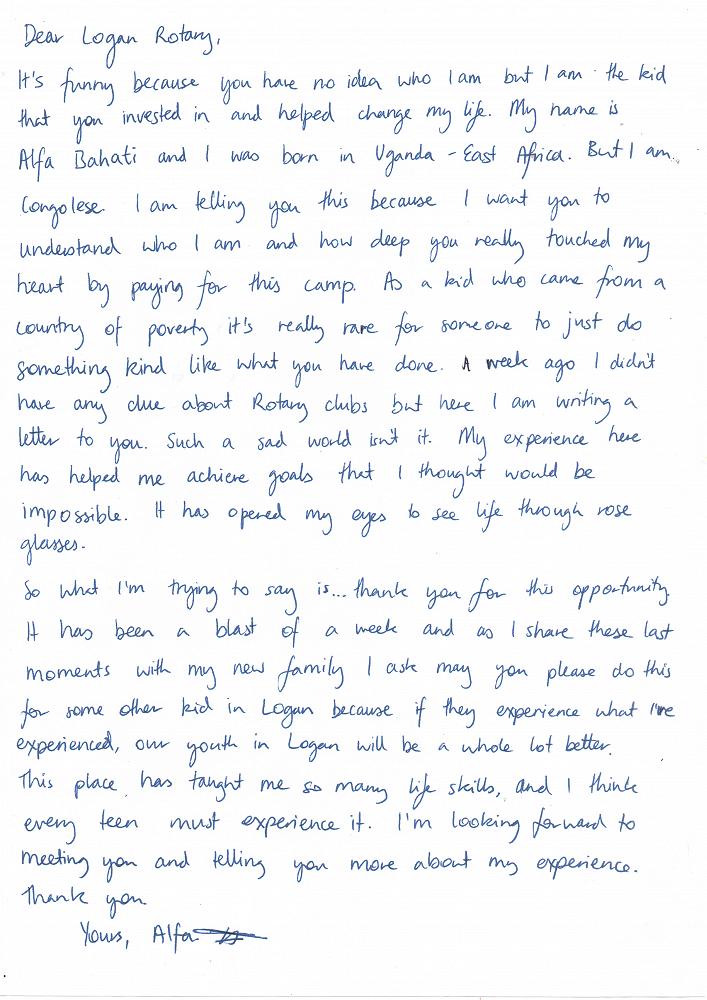 Dear Logan Rotary,
It's funny because you have no idea who I am but I am the kid
that you invested in and helped change my life. My name is
Alfa Bahati and I was born in Uganda - East Africa. But I am
Congolese. I am telling you this because I want you to
understand who I am and how deep you really touched my
heart by paying for this camp. As a kid who came from a
country of poverty it's really rare for someone to just do
something kind like what you have done. A week ago I didn't
have any clue about Rotary clubs but here I am writing a
letter to you. Such a sad world isn't it. My experience here
has helped me achieve goals that I thought would be
impossible. It has opened my eyes to see life through rose
glasses.
So what I'm trying to say is... thank you for this opportunity.
It has been a blast of a week and as I share these last
moments with my new family I ask may you please do this
for some other kid in Logan because if they experience what I've
experienced, our youth in Logan will be a whole lot better.
This place has taught me so many life skills, and I think
every teen must experience it. I'm looking forward to
meeting you and telling you more about my experience.
Thank you.
Yours, Alfa